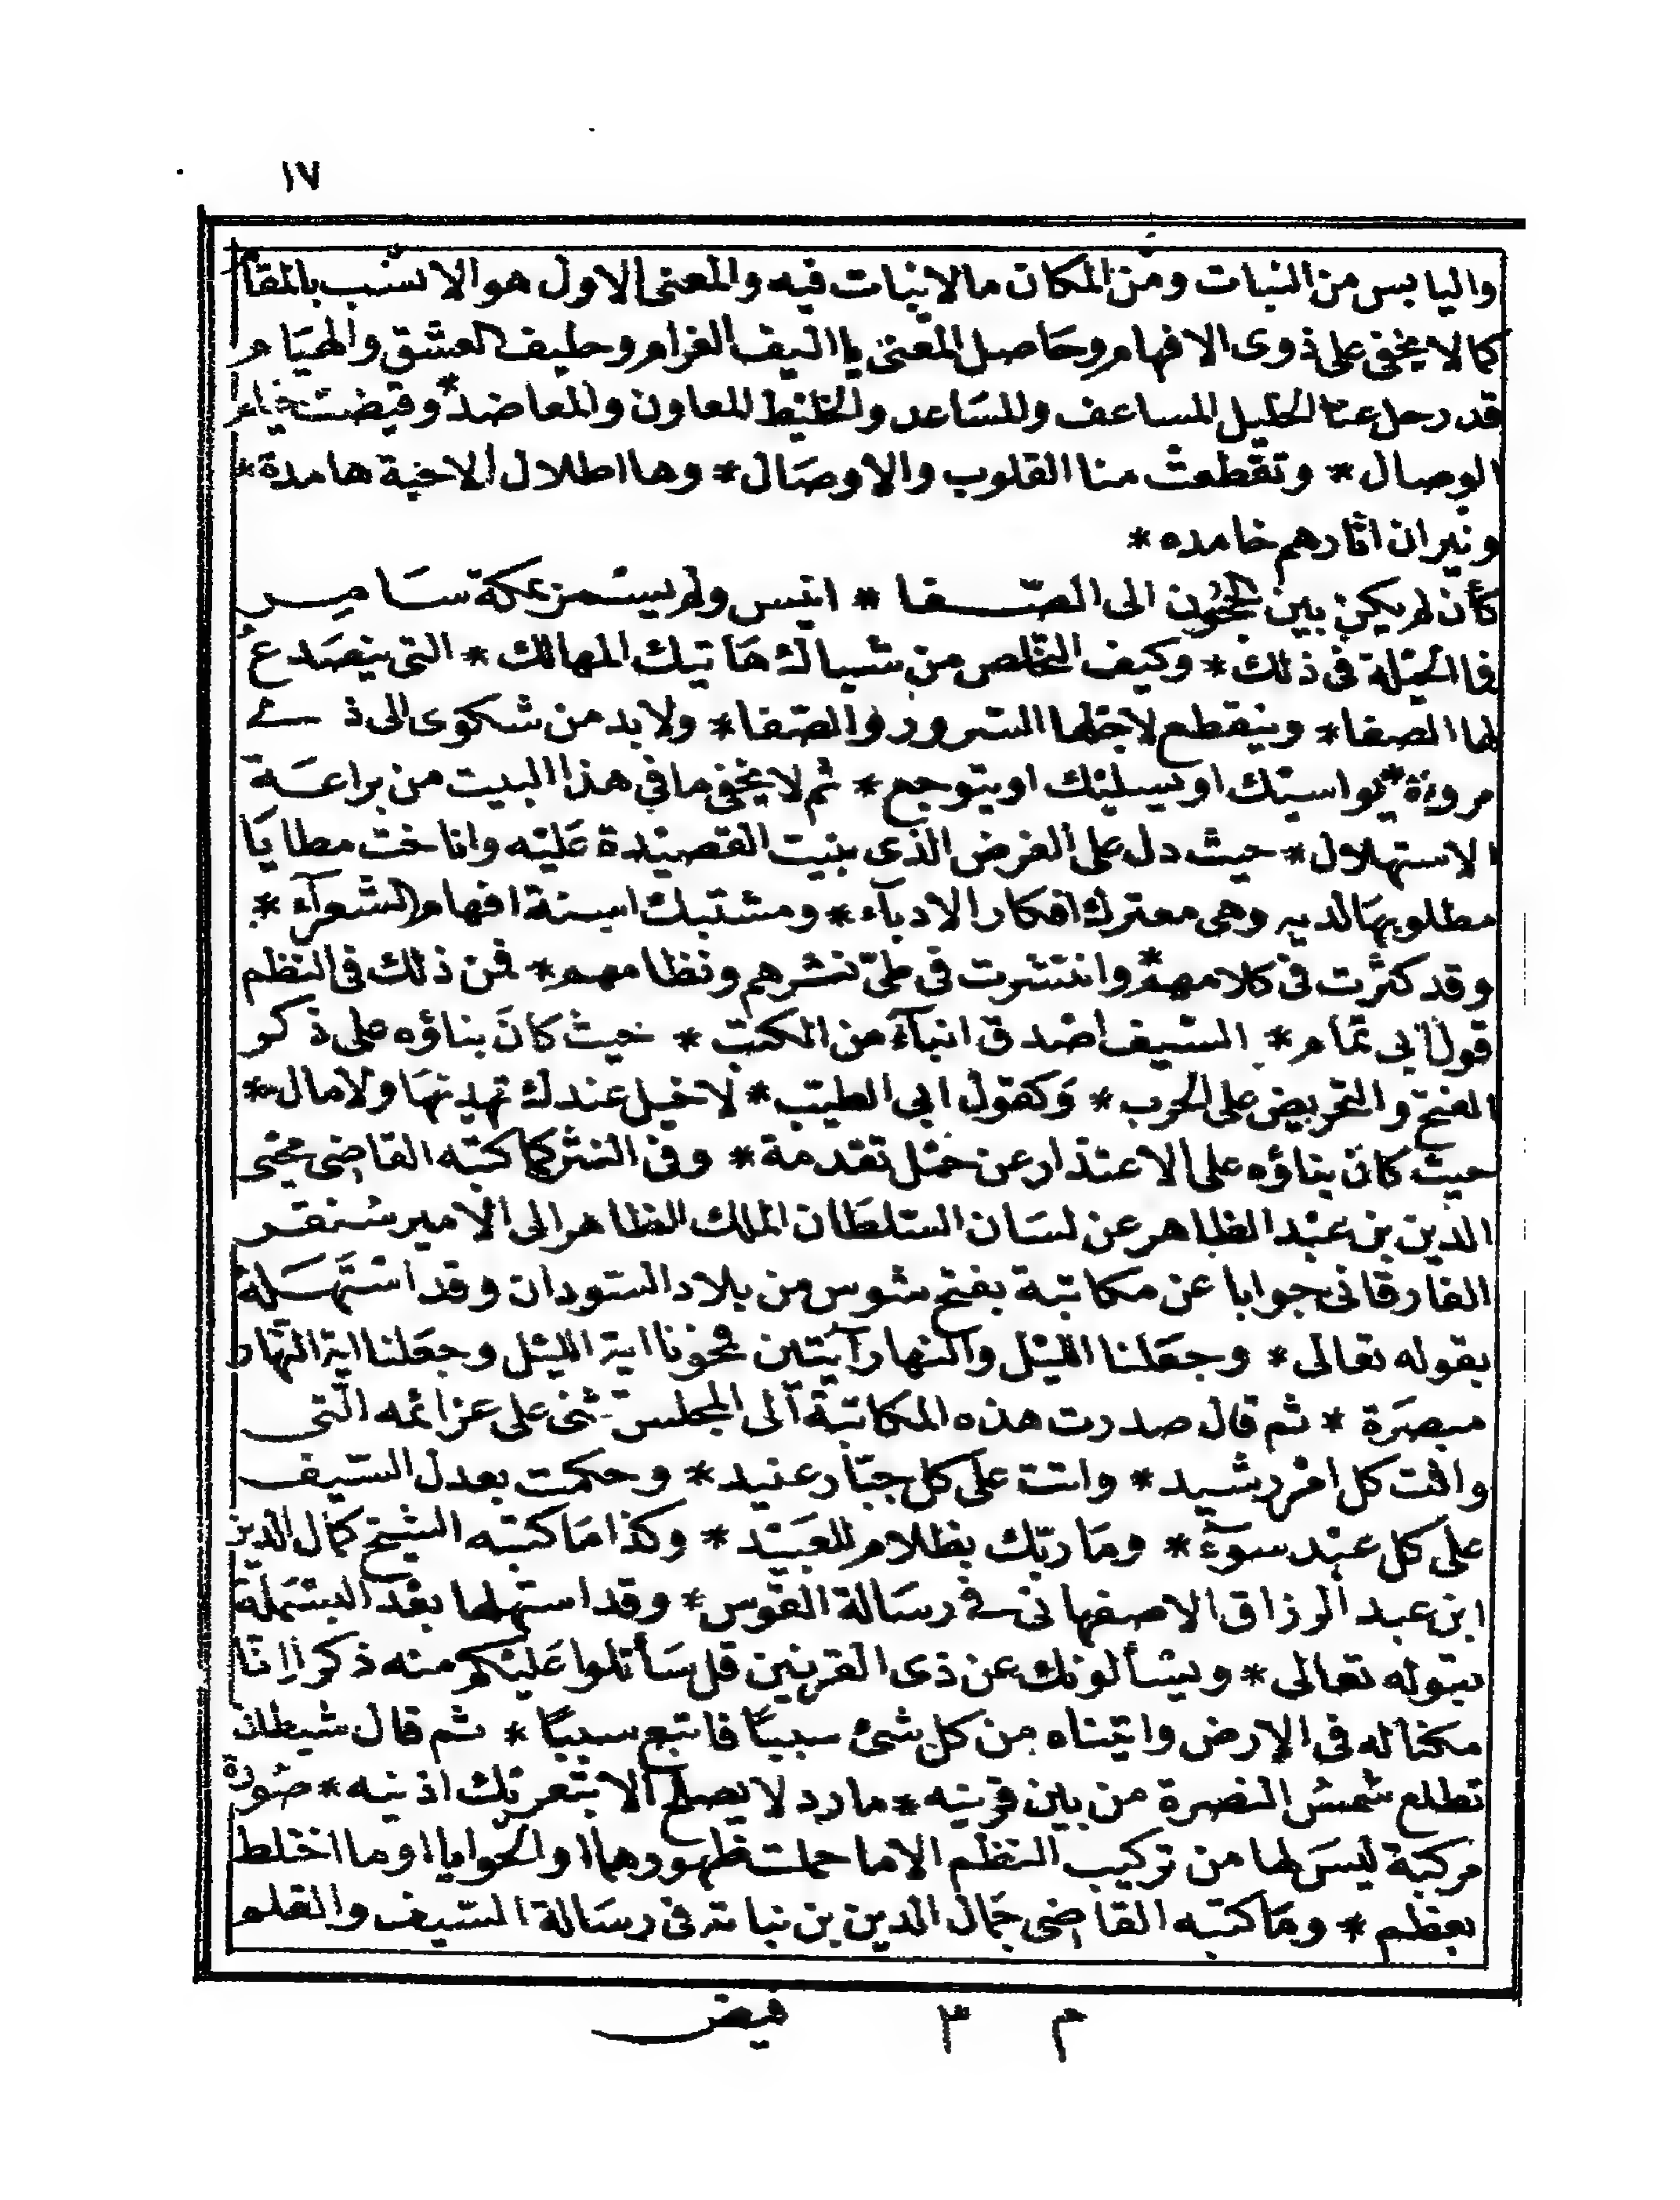 ١٧
واليابس من النبات ومن المكان مالانبات فيه والمعنى الاول هو الانسب بالمقا
كمالا يخفى على ذوى الافهام وحاصل المعنى يا اليف الغرام وحليف العشق والهيام
قد رحل عنا الخليل المساعف والمساعد والخليط المعاون والمعاضد * وقيضت خيام
الوصال * وتقطعت منا القلوب والاوصال * وها اطلال الاحبة هامدة *
ونيران اثارهم خامده *
كأن لم يكن بين الحجون الى الصفا * انيس ولم يسمر بمكة سامر
فما الحيلة فى ذلك * وكيف التخلص من شباك هاتيك المهالك * التى ينصدع
لها الصفا * وينقطع لاجلها السرور والصفا * ولابد من شكوى الى ذى
مروءة * يواسيك او يسليك او يتوجع * ثم لا يخفى ما في هذا البيت من براعة
الاستهلال * حيث دل على الغرض الذى بنيت القصيدة عليه واناخت مطايا
مطلوبها لديه وهى معترك افكار الادباء * ومشتبك اسنة افهام الشعرآء *
وقد كثرت فى كلامهم * وانتشرت فى طىّ نثرهم ونظامهم * فمن ذلك فى النظم
قول ابى تمام * السيف اصدق انبآء من الكتب * حيث كان بناؤه على ذكر
الفتح والتحريض على الحرب * وكقول ابى الطيب * لا خيل عندك تهديها ولا مال *
حيث كان بناؤه على الاعتذار عن حمل تقدمة * وفى النثر كما كتبه القاضى محيى
الدين بن عبد الظاهر عن لسان السلطان الملك الظاهر الى الامير سنقر
الفارقانى جوابا عن مكاتبة بفتح شوس من بلاد السودان وقد استهله
بقوله تعالى * وجعلنا الليل والنهار آيتين فمحونا اية الليل وجعلنا اية النهار
مبصرة * ثم قال صدرت هذه المكاتبة الى المجلس تثنى على عزائمه التى
وافت كل امر رشيد * واتت على كل جبّار عنيد * وحكمت بعدل السيف
على كل عبد سوء * وما ربّك بظلام للعبيد * وكذا ما كتبه الشيخ كمال الدين
ابن عبد الرزاق الاصفهانى فى رسالة القوس * وقد استهلها بعد البسملة
بقوله تعالى * ويسألونك عن ذى القرنين قل سأتلوا عليكم منه ذكرا انا
مكنا له فى الارض واتيناه من كل شئ سببًا فاتبع سببًا * ثم قال شيطان
تطلع شمس النصرة من بين قرنيه * مارد لا يصلح الا بتعريك اذنيه * صورة
مركبة ليس لها من تركيب النظم الا ما حملت ظهورهما او الحوايا او ما اختلط
بعظم * وما كتبه القاضى جمال الدين بن نباته فى رسالة السيف والقلم
م ٣ فيض